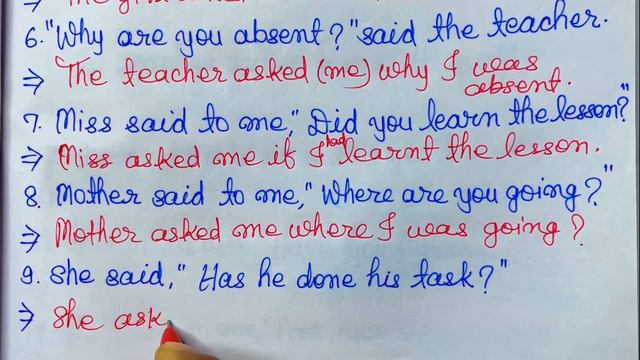 6. "Why are you absent?" said the teacher.
⇒ The teacher asked (me) why I was absent.
7. Miss said to me, "Did you learn the lesson?"
⇒ Miss asked me if I had learnt the lesson.
8. Mother said to me, "Where are you going?"
⇒ Mother asked me where I was going?
9. She said, "Has he done his task?"
⇒ She ask